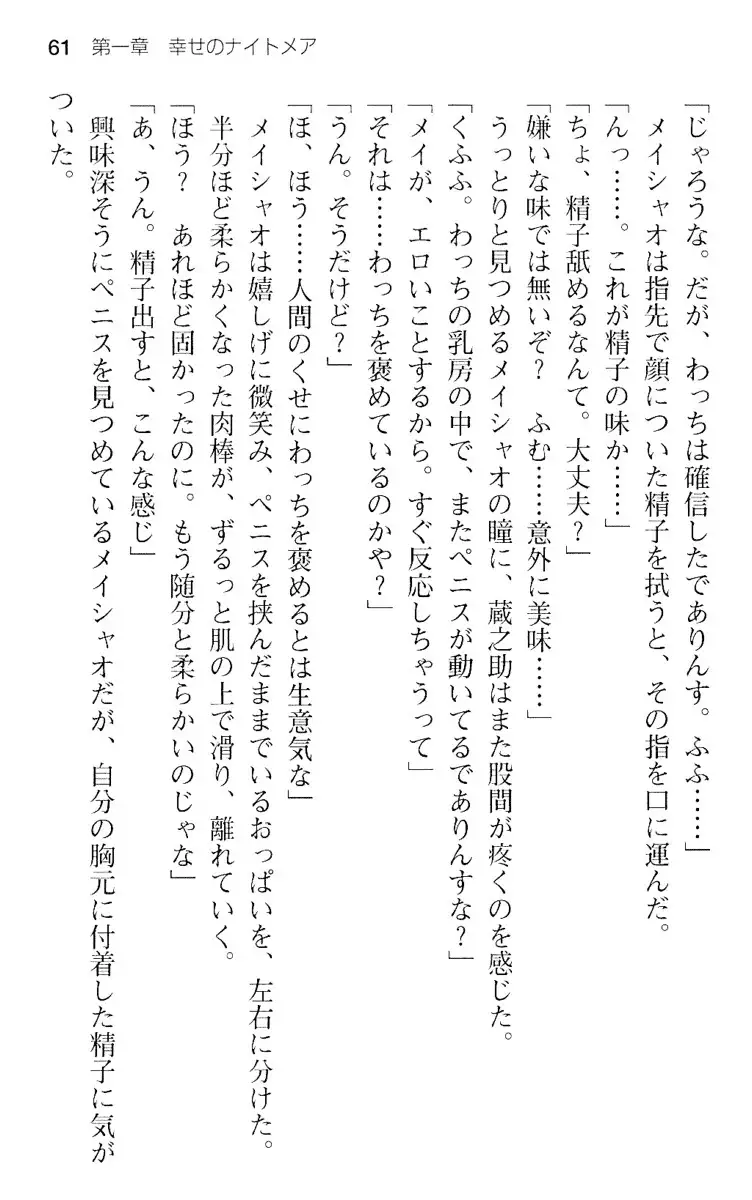 61　第一章　幸せのナイトメア
「じゃろうな。だが、わっちは確信したでありんす。ふふ……」
　メイシャオは指先で顔についた精子を拭うと、その指を口に運んだ。
「んっ……。これが精子の味か……」
「ちょ、精子舐めるなんて。大丈夫？」
「嫌いな味では無いぞ？　ふむ……意外に美味……」
　うっとりと見つめるメイシャオの瞳に、蔵之助はまた股間が疼くのを感じた。
「くふふ。わっちの乳房の中で、またペニスが動いてるでありんすな？」
「メイが、エロいことするから。すぐ反応しちゃうって」
「それは……わっちを褒めているのかや？」
「うん。そうだけど？」
「ほ、ほう……人間のくせにわっちを褒めるとは生意気な」
　メイシャオは嬉しげに微笑み、ペニスを挟んだままでいるおっぱいを、左右に分けた。
　半分ほど柔らかくなった肉棒が、ずるっと肌の上で滑り、離れていく。
「ほう？　あれほど固かったのに。もう随分と柔らかいのじゃな」
「あ、うん。精子出すと、こんな感じ」
　興味深そうにペニスを見つめているメイシャオだが、自分の胸元に付着した精子に気が
ついた。